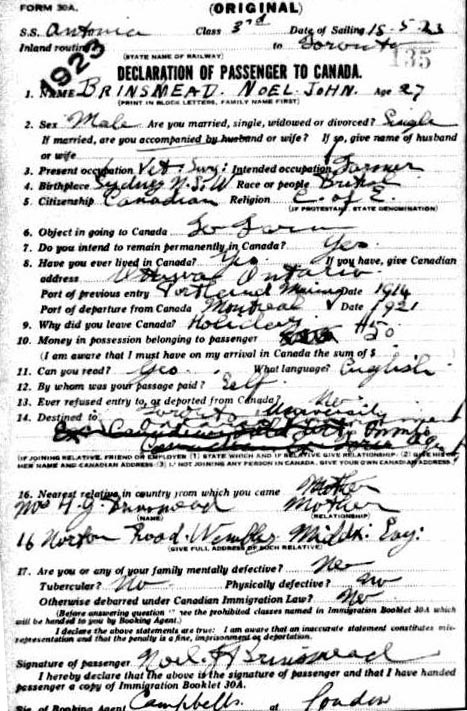 FORM 30A. (ORIGINAL)
S.S. Antonia Class 3rd Date of Sailing 18-5-23
Inland routing to Toronto
(STATE NAME OF RAILWAY)
135
1923
DECLARATION OF PASSENGER TO CANADA.
1. NAME BRINSMEAD. NOEL JOHN. Age 27
(PRINT IN BLOCK LETTERS, FAMILY NAME FIRST)
2. Sex Male Are you married, single, widowed or divorced? Single
If married, are you accompanied by husband or wife? If so, give name of husband
or wife
3. Present occupation Vet: Surg: Intended occupation Farmer
4. Birthplace Sydney N.S.W Race or people British
5. Citizenship Canadian Religion C. of E.
(IF PROTESTANT, STATE DENOMINATION)
6. Object in going to Canada To Farm
7. Do you intend to remain permanently in Canada? Yes
8. Have you ever lived in Canada? Yes If you have, give Canadian
address Ottawa Ontario
Port of previous entry Portland Maine Date 1914
Port of departure from Canada Montreal Date 1921
9. Why did you leave Canada? Holiday
10. Money in possession belonging to passenger 50
(I am aware that I must have on my arrival in Canada the sum of $
11. Can you read? Yes What language? English
12. By whom was your passage paid? Self
13. Ever refused entry to, or deported from Canada? No
14. Destined to Toronto University
(IF JOINING RELATIVE, FRIEND OR EMPLOYER (1) STATE WHICH AND IF RELATIVE GIVE RELATIONSHIP. (2) GIVE HIS OR
HER NAME AND CANADIAN ADDRESS (3) IF NOT JOINING ANY PERSON IN CANADA, GIVE YOUR OWN CANADIAN ADDRESS)
16. Nearest relative in country from which you came Mother
Mrs H. G. Brinsmead Mother
(NAME) (RELATIONSHIP)
16 Norton Road Wembley Middx: Eng:
(GIVE FULL ADDRESS OF SUCH RELATIVE)
17. Are you or any of your family mentally defective? No
Tubercular? No Physically defective? No
Otherwise debarred under Canadian Immigration Law? No
(Before answering question see the prohibited classes named in Immigration Booklet 30A which
will be handed to you by Booking Agent.)
I declare the above statements are true: I am aware that an inaccurate statement constitutes mis-
representation and that the penalty is a fine, imprisonment or deportation.
Signature of passenger Noel J Brinsmead
I hereby declare that the above is the signature of passenger and that I have handed
passenger a copy of Immigration Booklet 30A.
Sig. of Booking Agent Campbells at London